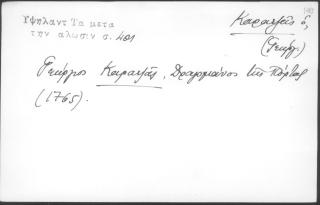 Ὑψηλαντ Τα μετα
την αλωσιν σ. 401
Καρατζᾶς ὁ,
(Γεώργ.)
Γεώργιος Καρατζᾶς, Δραγομάνος τῆς Πόρτας
(1765).